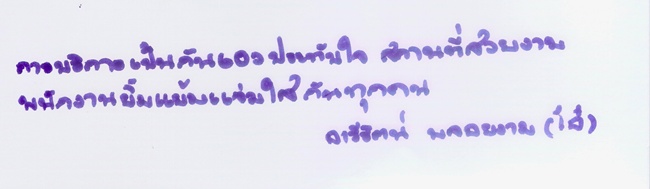 การบริการเป็นกันเอง ประทับใจ สถานที่สวยงาม
พนักงานยิ้มแย้มแจ่มใสกันทุกคน
อารีรัตน์ พลอยงาม (โอ๋)